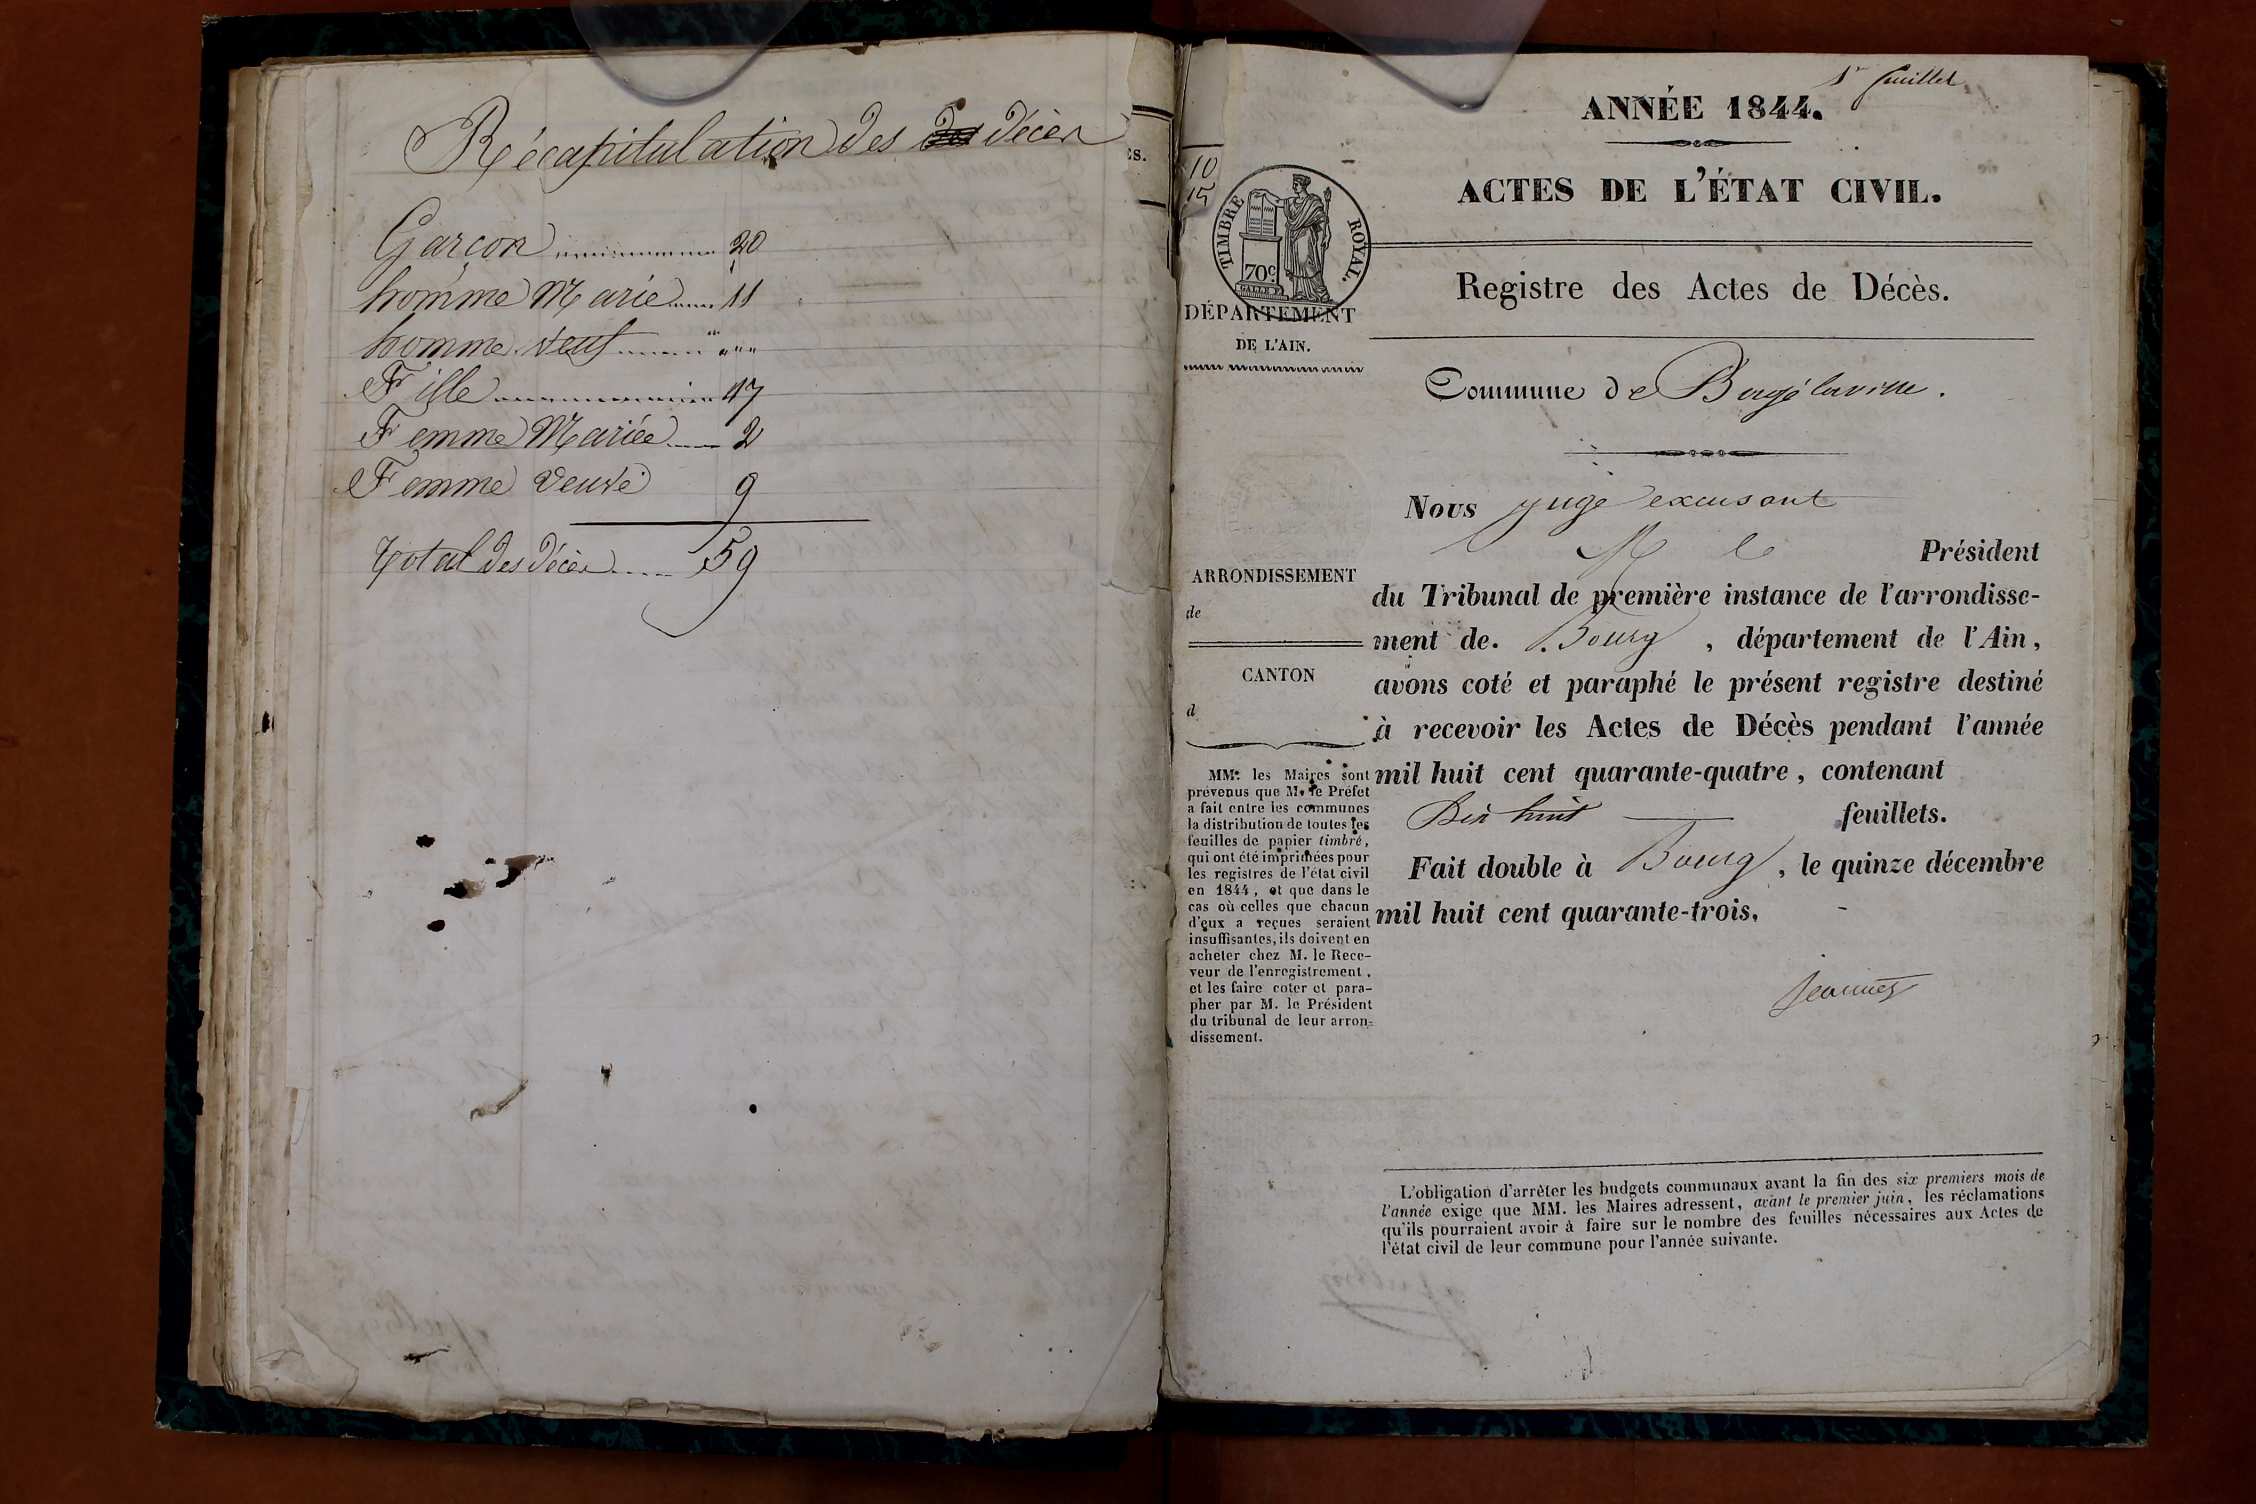 Récapitulation des décès
Garçon 20
homme Marié 11
homme veuf """
Fille 17
Femme Mariée 2
Femme veuve 9
total des décès 59
ES.
10
15
1er feuillet
ANNÉE 1844.
ACTES DE L'ÉTAT CIVIL.
TIMBRE ROYAL.
70c
DÉPARTEMENT
DE L'AIN.
Registre des Actes de Décès.
Commune de Bagé laville.
Nous juge excusant
M le Président
du Tribunal de première instance de l'arrondisse-
ment de. Bourg, département de l'Ain,
avons coté et paraphé le présent registre destiné
à recevoir les Actes de Décès pendant l'année
mil huit cent quarante-quatre, contenant
Dix huit feuillets.
Fait double à Bourg, le quinze décembre
mil huit cent quarante-trois.
ARRONDISSEMENT
de
CANTON
d
MM. les Maires sont
prévenus que M. le Préfet
a fait entre les communes
la distribution de toutes les
feuilles de papier timbré,
qui ont été imprimées pour
les registres de l'état civil
en 1844, et que dans le
cas où celles que chacun
d'eux a reçues seraient
insuffisantes, ils doivent en
acheter chez M. le Rece-
veur de l'enregistrement,
et les faire coter et para-
pher par M. le Président
du tribunal de leur arron-
dissement.
L'obligation d'arrêter les budgets communaux avant la fin des six premiers mois de
l'année exige que MM. les Maires adressent, avant le premier juin, les réclamations
qu'ils pourraient avoir à faire sur le nombre des feuilles nécessaires aux Actes de
l'état civil de leur commune pour l'année suivante.